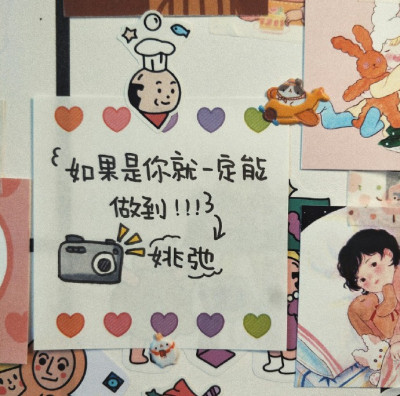 如果是你就一定能
做到!!!
姚弛